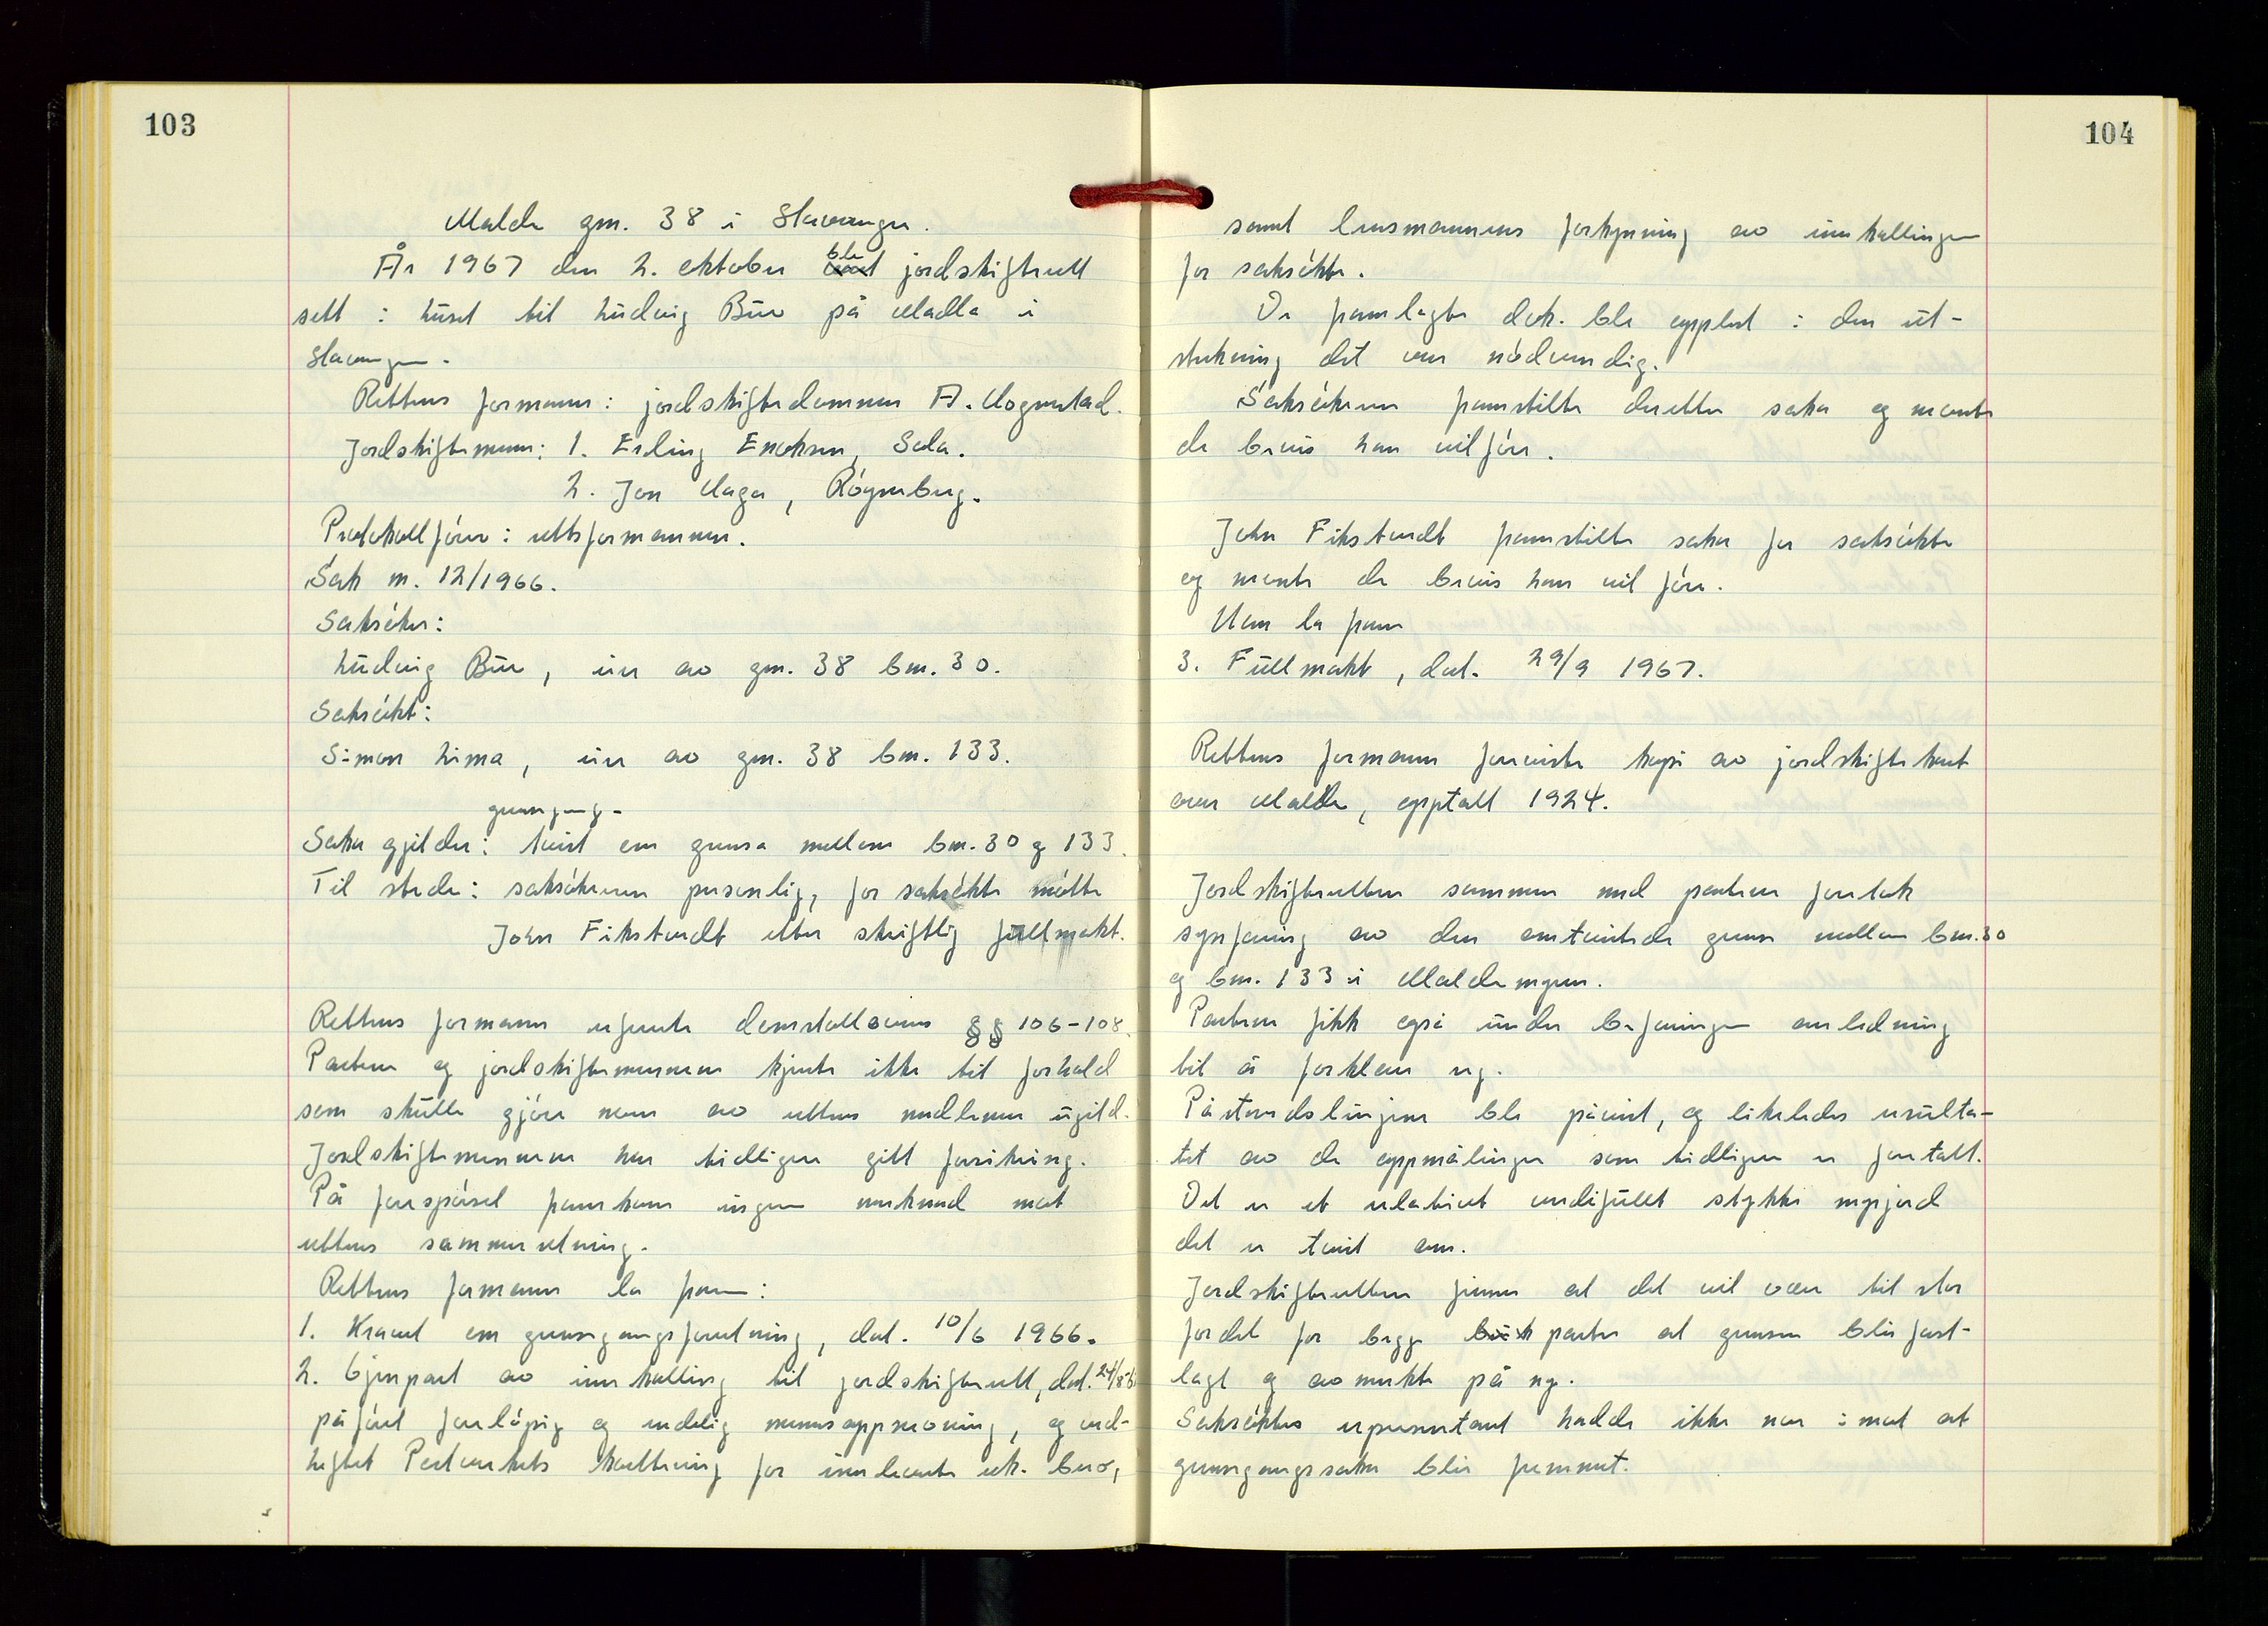 103
Malde gnr. 38 i Stavanger.
År 1967 den 2. oktober ble jordskifterett
satt i huset til Ludvig Bue på Madla i
Stavanger.
Rettens formann: jordskiftedommer A.
Jordskiftemenn: 1. Erling Enoksen, Sola.
2. Jon Haga, Røyneberg.
Protokollfører: rettsformannen.
Sak nr. 12/1966.
Saksøker:
Ludvig Bue, eier av gnr. 38 bnr. 30.
Saksøkt:
Simon Lima, eier av gnr. 38 bnr. 133.
grensegang-
Saka gjelder: tvist om grensa mellom bnr. 30 og 133.
Til stede: saksøkeren personlig, for saksøkte møtte
John Fikstvedt etter skriftlig fullmakt.
Rettens formann refererte domstollovens §§ 106-108.
Partene og jordskiftemennene kjente ikke til forhold
som skulle gjøre noen av rettens medlemmer ugild.
Jordskiftemennene har tidligere gitt forsikring.
På forespørsel framkom ingen merknad mot
rettens sammensetning.
Rettens formann la fram:
1. Kravet om grensegangsforretning, dat. 10/6 1966.
2. Gjenpart av innkalling til jordskifterett, dat. 24/8-67
påført foreløpig og endelig mannsoppnevning, og ved-
heftet Postverkets kvittering for innleverte rek. brev,
104
samt lensmannens forkynning av innkallingen
for saksøkte.
De framlagte dok. ble opplest i den ut-
strekning det var nødvendig.
Saksøkeren framstilte deretter saka og nevnte
de bevis han vil føre.
John Fikstvedt framstilte saka for saksøkte
og nevnte de bevis han vil føre.
Han la fram
3. Fullmakt, dat. 29/9 1967.
Rettens formann foreviste kopi av jordskiftekart
over Malde, opptatt 1924.
Jordskifteretten sammen med partene foretok
synfaring av den omtvistede grense mellom bnr. 30
og bnr. 133 i Maldemyra.
Partene fikk også under befaringen anledning
til å forklare seg.
Påstandslinjene ble påvist, og likeledes resulta-
tet av de oppmålinger som tidligere er foretatt.
Det er et relativt verdifullt stykke myrjord
det er tvist om.
Jordskifteretten finner at det vil være til stor
fordel for begge parter at grensen blir fast-
lagt og avmerkte på ny.
Saksøktes representant hadde ikke noe imot at
grensegangssaka blir fremmet.